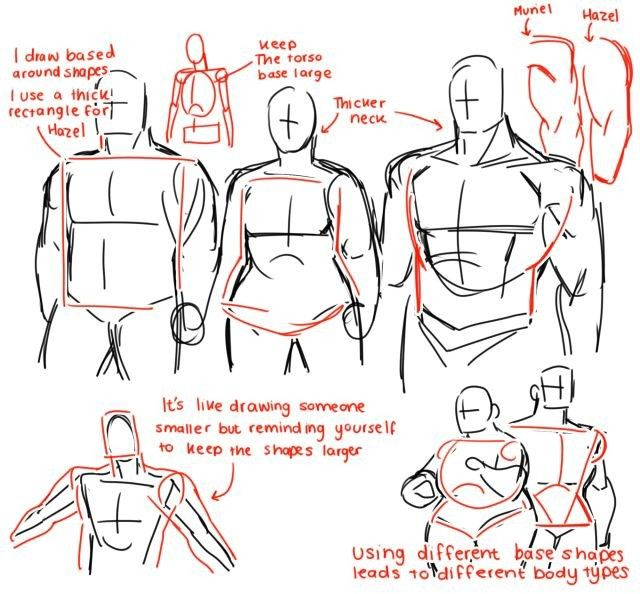 I draw based
around shapes
I use a thick
rectangle for
Hazel
Keep
The torso
base large
Thicker
neck
Muriel
Hazel
It's like drawing someone
smaller but reminding yourself
to keep the shapes larger
using different base shapes
leads to different body types